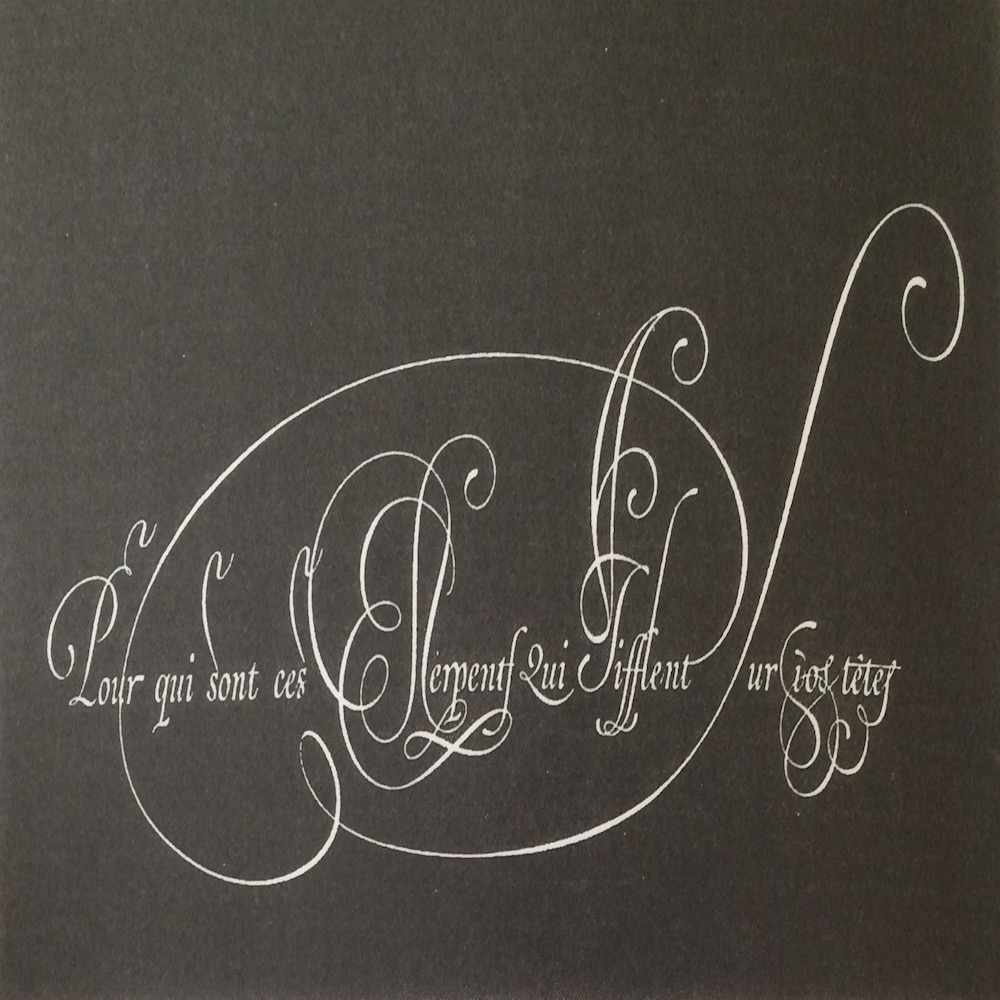 Pour qui sont ces Serpents Qui Sifflent Sur vos têtes